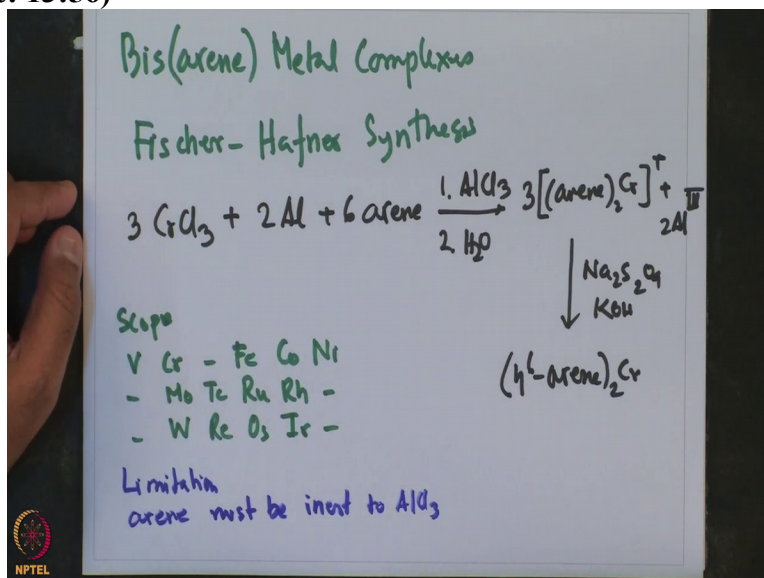 : 15:50)
Bis(arene) Metal Complexes
Fischer-Hafner Synthesis
3 CrCl3 + 2Al + 6 arene 1. AlCl3 2 H2O 3[(arene)2Cr]+ + 2Al III
Na2S2O4
KOH
(η6-arene)2Cr
Scope
V Cr - Fe Co Ni
- Mo Tc Ru Rh -
- W Re Os Ir -
Limitation
arene must be inert to AlCl3
NPTEL